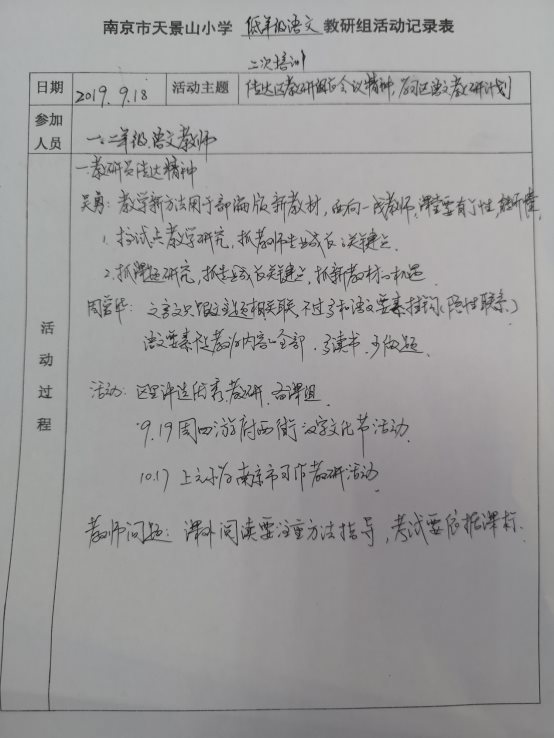 南京市天景山小学 低年级语文 教研组活动记录表
二次培训
日期 2019.9.18 活动主题 传达区教研员会议精神,学习区语文教研计划
参加人员 一、二年级语文教师
活动过程
一教研员传达精神
吴勇:教学新方法用于部编版新教材,面向一线教师,课堂要有
1.抓试点教学研究,抓教师专业成长关键点.
2.抓课题研究,抓专业成长关键点,抓新教材的机遇
文言文只跟主题相关联,不过多和语文要素挂钩(隐性联系)
语文要素不是教的内容的全部.多读书.少做题.
活动:区里评选优秀教研.备课组
9.19周四游府西街汉字文化节活动
10.17上元小学南京市习作教研活动
教师问题:课外阅读要注重方法指导,考试要依据课标.